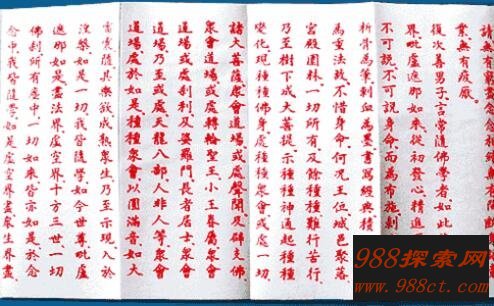 請無有窮盡念念相續無有間斷
業無有疲厭
復次善男子言常隨佛學者如此
界毗盧遮那如來從初發心精進
不可說不可說身命而為布施剝
析骨為筆刺血為墨書寫經典積
為重法故不惜身命何況王位城邑聚落
宮殿園林一切所有及餘種種難行苦行
乃至樹下成大菩提示種種神通起種種
變化現種種佛身處種種眾會或處一切
諸大菩薩眾會道場或處聲聞及辟支佛
眾會道場或處轉輪聖王小王眷屬眾會
道場或處剎利及婆羅門長者居士眾會
道場乃至或處天龍八部人非人等眾會
道場處於如是種種眾會以圓滿音如大
雷震隨其樂欲成熟眾生乃至示現入於
涅槃如是一切我皆隨學如今世尊毗盧
遮那如是盡法界虛空界十方三世一切
佛剎所有塵中一切如來皆亦如是於念
念中我皆隨學如是虛空界盡眾生界盡
988探索网
www.988ct.com